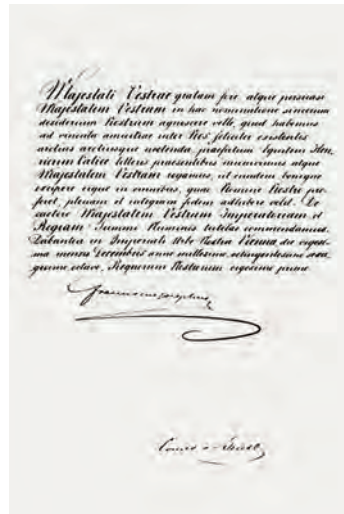 Majestati Vestrae gratam fore atque persuasi
Majestatem Vestram in hac nominatione sincerum
desiderium Nostrum agnoscere velle, quod habemus
ad vincula amicitiae inter Nos feliciter existentis
arctius arctiusque nectenda, praefatum Equitem Hen-
ricum Calice litteris praesentibus munivimus atque
Majestatem Vestram rogamus, ut eundem benigne
excipere eique in omnibus, quae Nomine Nostro pro-
feret, plenam et integram fidem adhibere velit. De
caetero Majestatem Vestram Imperatoriam et
Regiam Summi Numinis tutelae commendamus.
Dabantur in Imperiali Urbe Nostra Vienna die vigesi-
ma mensis Decembris anno millesimo octingentesimo sexa-
gesimo octavo, Regnorum Nostrorum vigesimo primo.
Franciscus Josephus